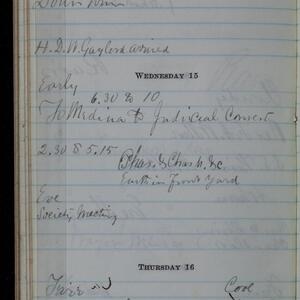 Down town
H.D.W. Gaylord arrived
WEDNESDAY 15
Early
6.30 to 10
To Medina to Judicial Convert
2.30 & 5.15
Chas. & Chas W. &c
Earth in Front Yard
Eve
Society Meeting
THURSDAY 16
Fair
Cool